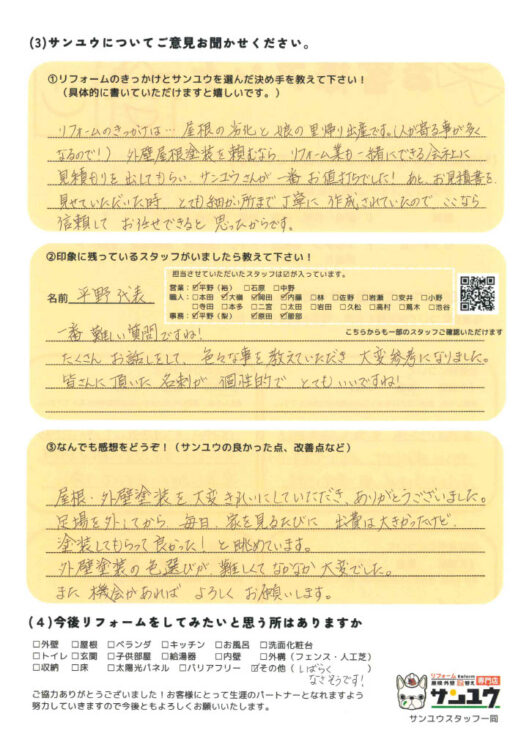 (3)サンユウについてご意見お聞かせください。
①リフォームのきっかけとサンユウを選んだ決め手を教えて下さい！
（具体的に書いていただけますと嬉しいです。）
リフォームのきっかけは… 屋根の劣化と娘の里帰り出産です。(人が寄る事が多く
なるので！) 外壁屋根塗装を頼むなら リフォーム業も一緒にできる会社に
見積もりを出してもらい、サンユウさんが一番お値打ちでした！ あと、お見積書を
見せていただいた時、とても細かい所まで丁寧に作成されていたので、ここなら
信頼して お任せできると 思ったからです。
②印象に残っているスタッフがいましたら教えて下さい！
担当させていただいたスタッフは☑が入っています。
営業：☑平野（裕） □石原 □中野
名前 平野代表
職人：□本田 ☑大嶺 ☑岡田 ☑内藤 □林 □佐野 □岩瀬 □安井 □小野
□寺田 □本多 □二宮 □太田 □岩田 □久松 □高村 □蔦木 □池谷
事務：☑平野（梨） ☑原田 ☑服部
一番 難しい質問ですね！
こちらからも一部のスタッフご確認いただけます
たくさん お話しをして、色々な事を教えていただき 大変参考になりました。
皆さんに頂いた 名刺が 個性的で とてもいいですね！
③なんでも感想をどうぞ！（サンユウの良かった点、改善点など）
屋根・外壁塗装を大変きれいにしていただき、ありがとうございました。
足場を外してから 毎日、家を見るたびに 出費は大きかったけど、
塗装してもらって良かった！ と眺めています。
外壁塗装の色選びが 難しくてなかなか大変でした。
また 機会があれば よろしく お願いします。
(4)今後リフォームをしてみたいと思う所はありますか
□外壁 □屋根 □ベランダ □キッチン □お風呂 □洗面化粧台
□トイレ □玄関 □子供部屋 □給湯器 □内壁 □外構（フェンス・人工芝）
□収納 □床 □太陽光パネル □バリアフリー ☑その他（しばらく
なさそうです！）
ご協力ありがとうございました！お客様にとって生涯のパートナーとなれますよう
努力していきますので今後ともよろしくお願いいたします。
リフォーム Reform
屋根・外壁 塗り替え 専門店
サンユウ
サンユウスタッフ一同